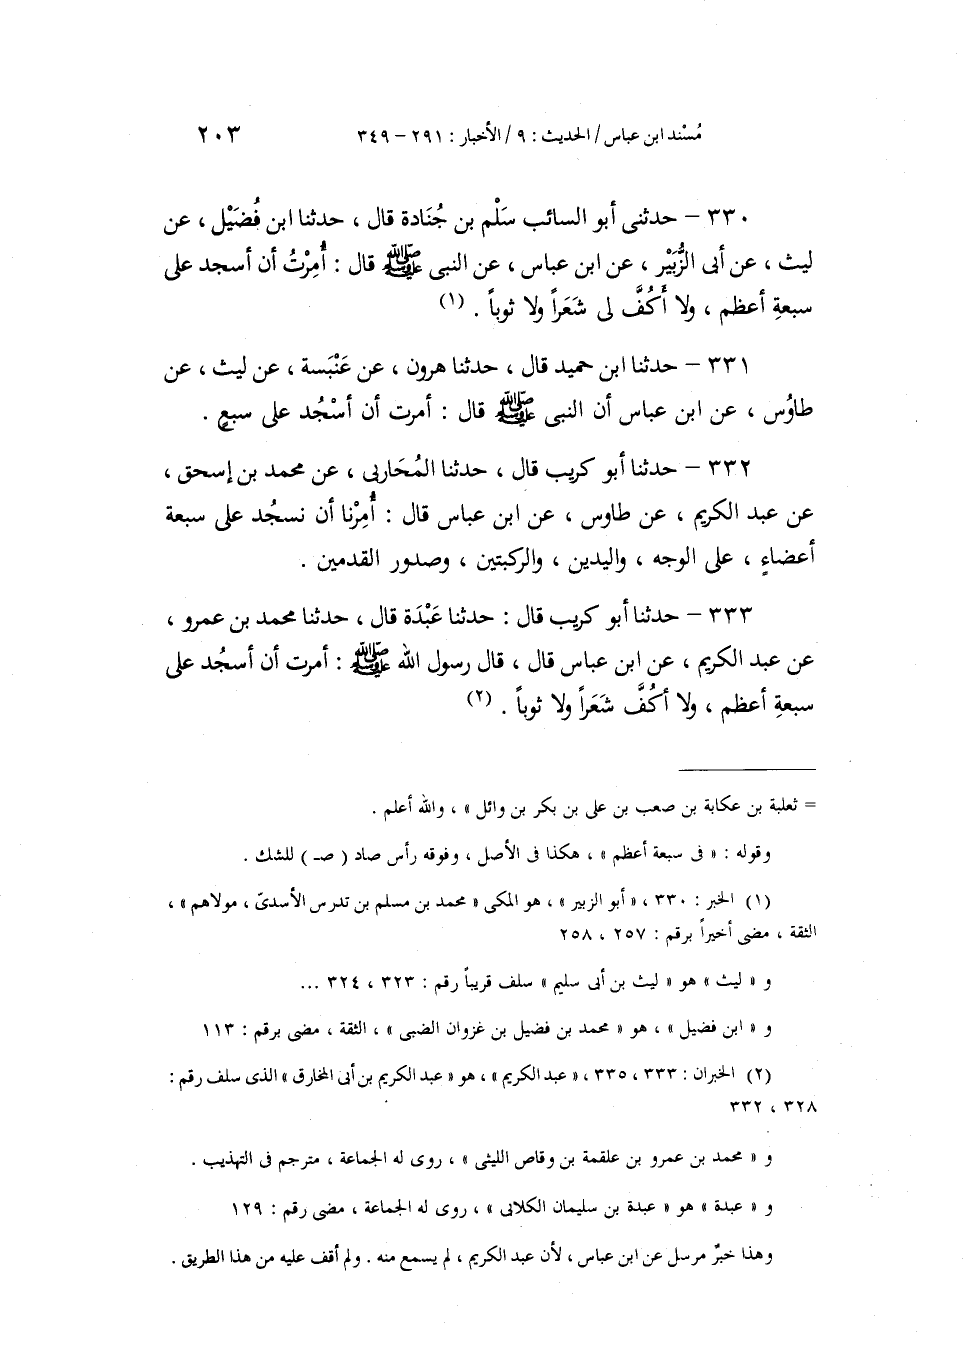 مُسْند ابن عباس / الحديث : ٩ / الأخبار : ٢٩١ - ٣٤٩ ٢٠٣
٣٣٠ - حدثنى أبو السائب سَلْم بن جُنَادة قال ، حدثنا ابن فُضَيْل ، عن
ليث ، عن أبى الزُّبَيْر ، عن ابن عباس ، عن النبى ﷺ قال : أُمِرْتُ أن أسجد على
سبعةِ أعظم ، ولا أَكُفَّ لى شَعَراً ولا ثوباً . (١)
٣٣١ - حدثنا ابن حميد قال ، حدثنا هرون ، عن عَنْبَسة ، عن ليث ، عن
طاوُس ، عن ابن عباس أن النبى ﷺ قال : أمرت أن أسْجُد على سبعٍ .
٣٣٢ - حدثنا أبو كريب قال ، حدثنا المُحَاربى ، عن محمد بن إسحق ،
عن عبد الكريم ، عن طاوس ، عن ابن عباس قال : أُمِرْنا أن نسجُد على سبعة
أعضاءٍ ، على الوجه ، واليدين ، والركبتين ، وصدور القدمين .
٣٣٣ - حدثنا أبو كريب قال : حدثنا عَبْدَة قال ، حدثنا محمد بن عمرو ،
عن عبد الكريم ، عن ابن عباس قال ، قال رسول الله ﷺ : أمرت أن أسجُد على
سبعةِ أعظم ، ولا أكُفَّ شَعَراً ولا ثوباً . (٢)
= ثعلبة بن عكابة بن صعب بن على بن بكر بن وائل » ، والله أعلم .
وقوله : « فى سبعة أعظم » ، هكذا فى الأصل ، وفوقه رأس صاد ( صـ ) للشك .
(١) الخبر : ٣٣٠ ، « أبو الزبير » ، هو المكى « محمد بن مسلم بن تدرس الأسدىّ ، مولاهم » ،
الثقة ، مضى أخيراً برقم : ٢٥٧ ، ٢٥٨
و « ليث » هو « ليث بن أبى سليم » سلف قريباً رقم : ٣٢٣ ، ٣٢٤ ...
و « ابن فضيل » ، هو « محمد بن فضيل بن غزوان الضبى » ، الثقة ، مضى برقم : ١١٣
(٢) الخبران : ٣٣٣ ، ٣٣٥ ، « عبد الكريم » ، هو « عبد الكريم بن أبى المخارق » الذى سلف رقم :
٣٢٨ ، ٣٣٢
و « محمد بن عمرو بن علقمة بن وقاص الليثى » ، روى له الجماعة ، مترجم فى التهذيب .
و « عبدة » هو « عبدة بن سليمان الكلابى » ، روى له الجماعة ، مضى رقم : ١٢٩
وهذا خبرٌ مرسل عن ابن عباس ، لأن عبد الكريم ، لم يسمع منه . ولم أقف عليه من هذا الطريق .